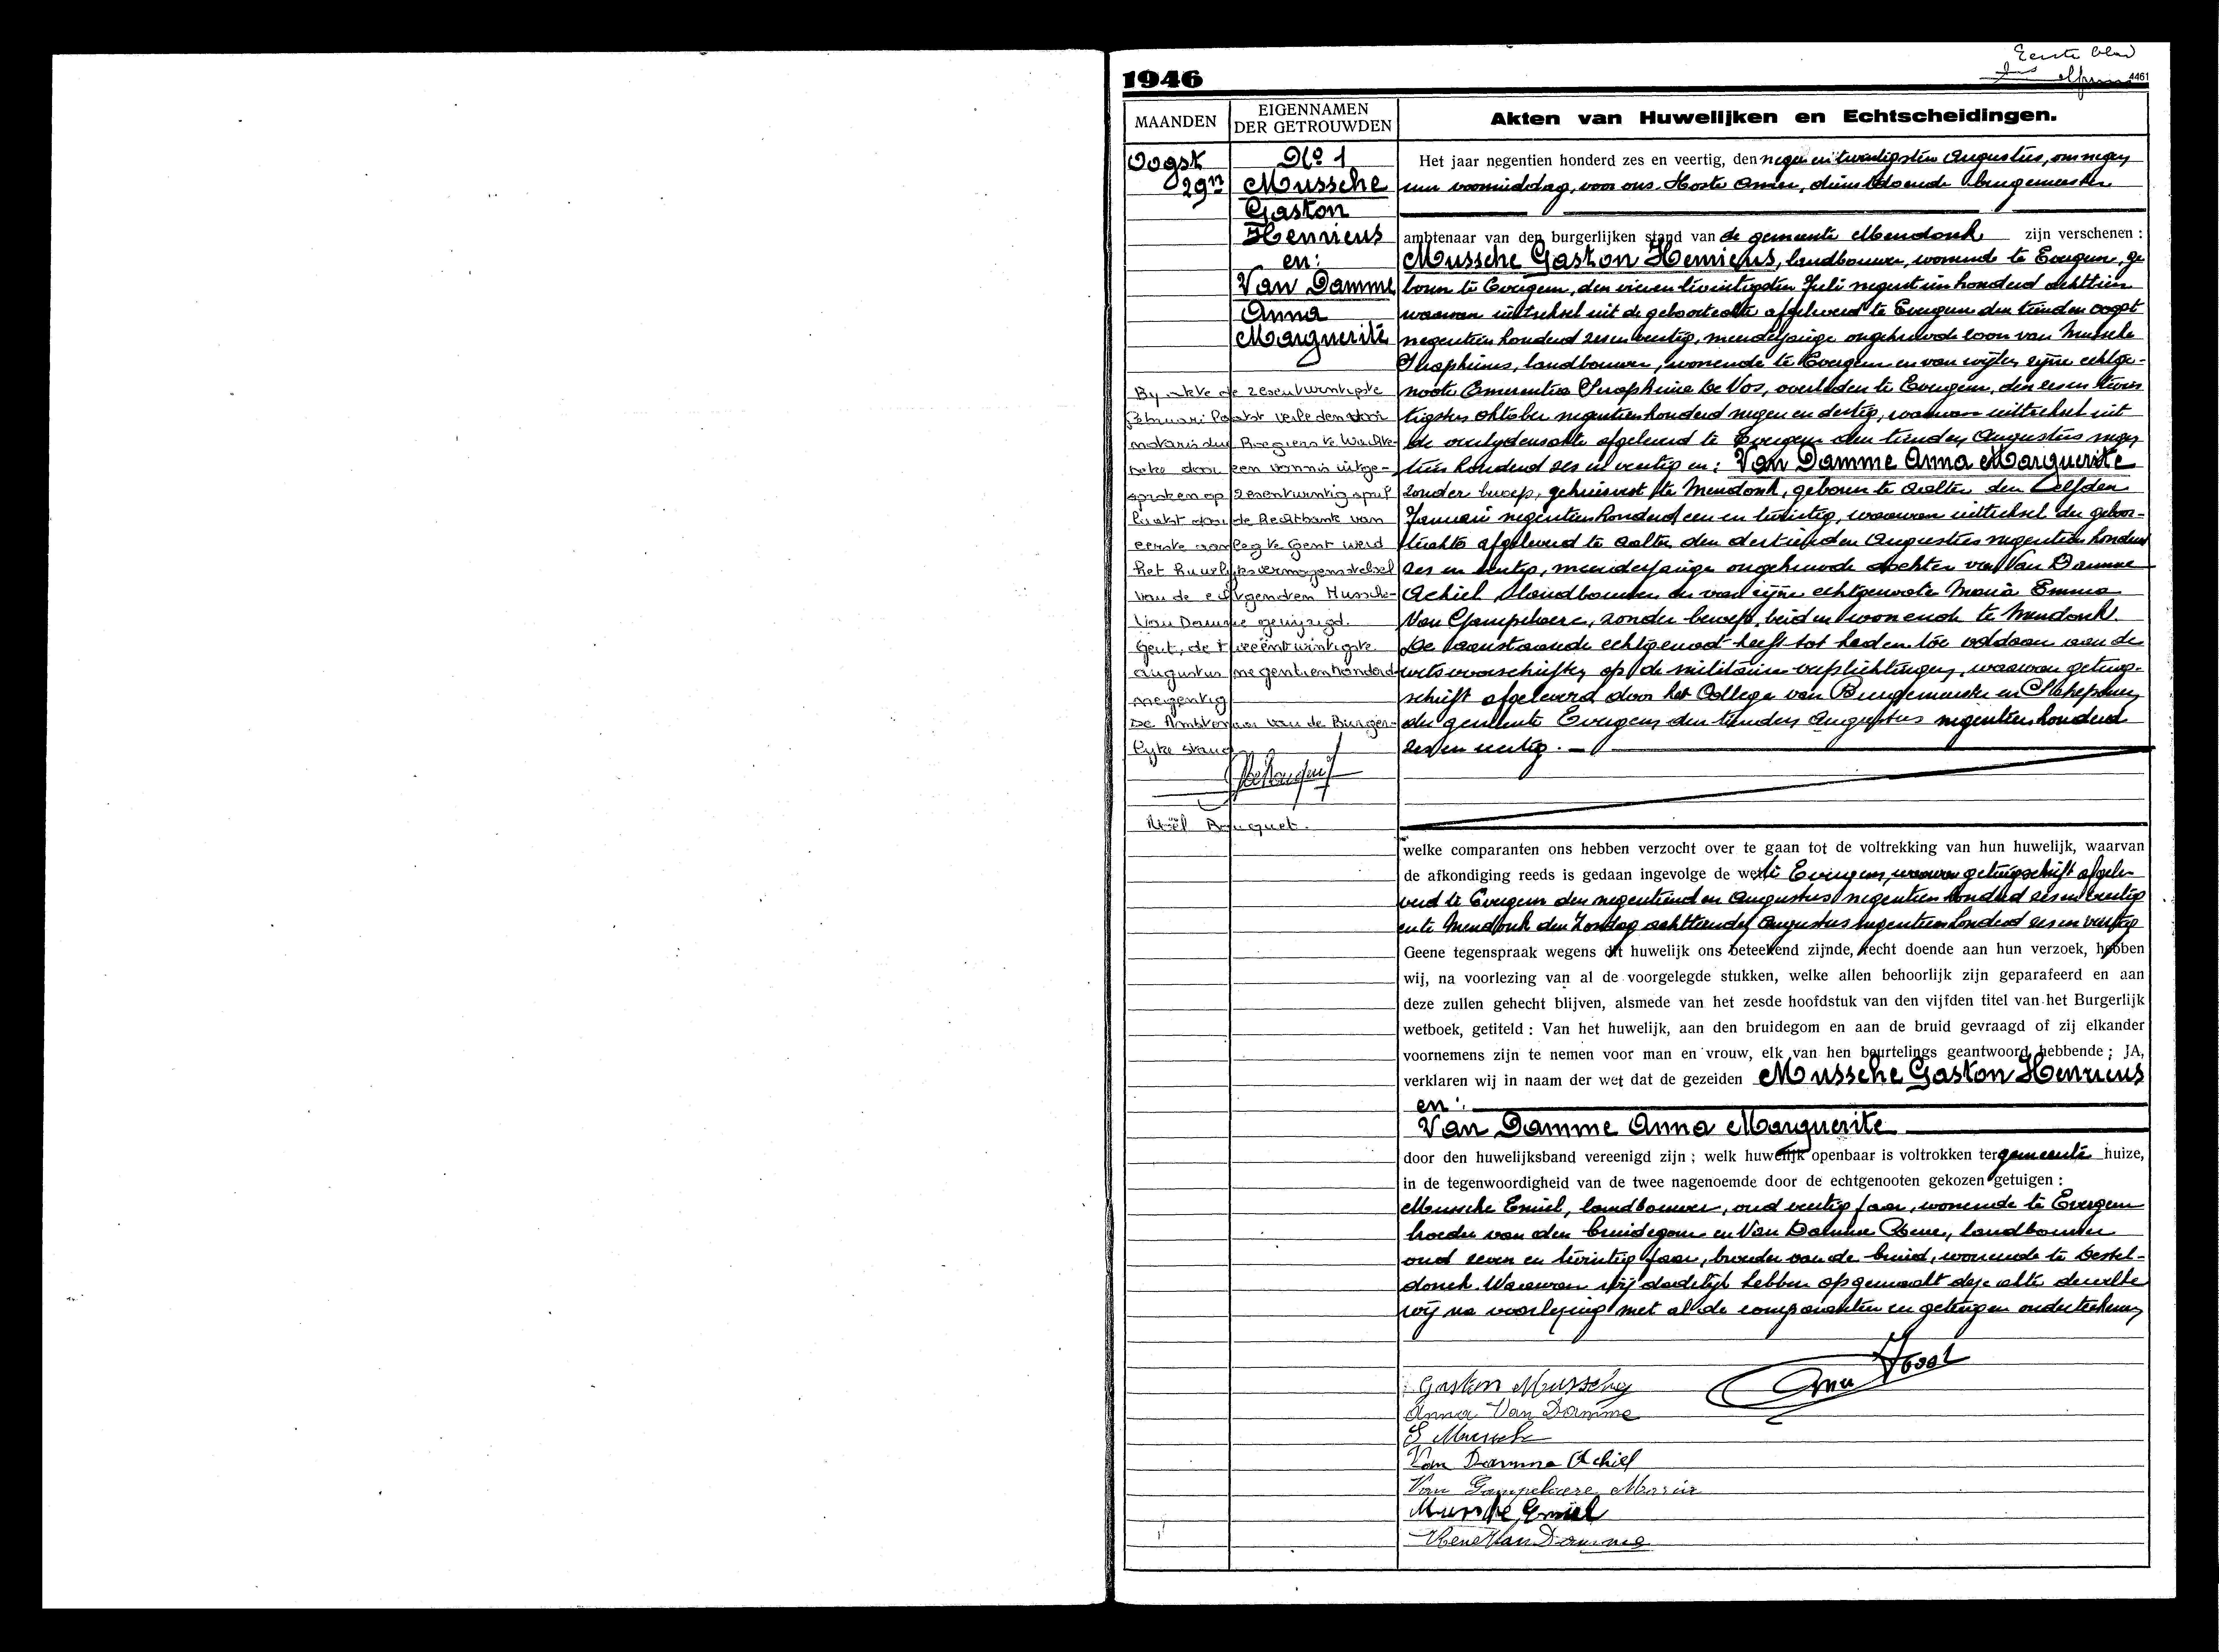 Eerste blad
4461
1946
MAANDEN
EIGENNAMEN
DER GETROUWDEN
Akten van Huwelijken en Echtscheidingen.
Oogst
29n
No 1
Mussche
Gaston
Henricus
en:
Van Damme
Anna
Marguerite
By akte de zesentwintigste
februari laatst verleden door
notaris Roegiers te Wachte-
beke door een vonnis uitge-
sproken op zesentwintig april
laatst door de Rechtbank van
eerste aanleg te Gent werd
het huwelijksvermogensstelsel
van de echtgenoten Mussche-
Van Damme gewijzigd.
Gent, de tweeëntwintigste
augustus negentienhonderd
negentig
De Ambtenaar van de Burger-
lyke stand
Noël Bouquet.
Het jaar negentien honderd zes en veertig, den negen en twintigsten Augustus, om negen
uur voormiddag, voor ons Hoste Omer, dienstdoende burgemeester
ambtenaar van den burgerlijken stand van de gemeente Mendonk zijn verschenen :
Mussche Gaston Henricus, landbouwer, wonende te Evergem, ge
boren te Evergem, den vier en twintigsten Juli negentien honderd achttien
waarvan uittreksel uit de geboorteakte afgeleverd te Evergem den tienden oogst
negentien honderd zes en veertig, meerderjarige ongehuwde zoon van Mussche
Seraphinus, landbouwer, wonende te Evergem en van wijlen zijne echtge-
noote Emerentia Seraphina De Vos, overleden te Evergem, den zes en twin
tigsten oktober negentien honderd negen en dertig, waarvan uittreksel uit
de overlydensakte afgeleverd te Evergem den tienden Augustus negen
tien honderd zes en veertig en: Van Damme Anna Marguerite
zonder beroep, gehuisvest te Mendonk, geboren te Aalter den elfden
Januari negentien honderd een en twintig, waarvan uittreksel der geboor-
teakte afgeleverd te Aalter den dertienden Augustus negentien honderd
zes en veertig, meerderjarige ongehuwde dochter van Van Damme
Achiel landbouwer en van zijne echtgenoote Maria Emma
Van Gampelaere, zonder beroep, beiden wonende te Mendonk.
De aanstaande echtgenoot heeft tot heden toe voldaan aan de
wetsvoorschriften op de militaire verplichtingen, waarvan getuig-
schrift afgeleverd door het College van Burgemeester en Schepenen
der gemeente Evergem, den tienden Augustus negentien honderd
zes en veertig. —
welke comparanten ons hebben verzocht over te gaan tot de voltrekking van hun huwelijk, waarvan
de afkondiging reeds is gedaan ingevolge de wet te Evergem, waarvan getuigschrift afgele-
verd te Evergem den negentienden Augustus negentien honderd zes en veertig
en te Mendonk den Zondag achttienden Augustus negentien honderd zes en veertig
Geene tegenspraak wegens dit huwelijk ons beteekend zijnde, recht doende aan hun verzoek, hebben
wij, na voorlezing van al de voorgelegde stukken, welke allen behoorlijk zijn geparafeerd en aan
deze zullen gehecht blijven, alsmede van het zesde hoofdstuk van den vijfden titel van het Burgerlijk
wetboek, getiteld : Van het huwelijk, aan den bruidegom en aan de bruid gevraagd of zij elkander
voornemens zijn te nemen voor man en vrouw, elk van hen beurtelings geantwoord hebbende ; JA,
verklaren wij in naam der wet dat de gezeiden Mussche Gaston Henricus
en :
Van Damme Anna Marguerite
door den huwelijksband vereenigd zijn ; welk huwelijk openbaar is voltrokken ter gemeente huize,
in de tegenwoordigheid van de twee nagenoemde door de echtgenooten gekozen getuigen :
Mussche Emiel, landbouwer, oud veertig jaar, wonende te Evergem
broeder van den bruidegom en Van Damme Rene, landbouwer
oud zeven en twintig jaar, broeder van de bruid, wonende te Destel-
donck. Waarvan wij dadelijk hebben opgemaakt deze akte dewelke
wij na voorlezing met al de comparanten en getuigen onderteekenen
Gaston Mussche
Omer Hoste
Anna Van Damme
S Mussche
Van Damme Achiel
Van Gampelaere Maria
Mussche Emiel
Rene Van Damme